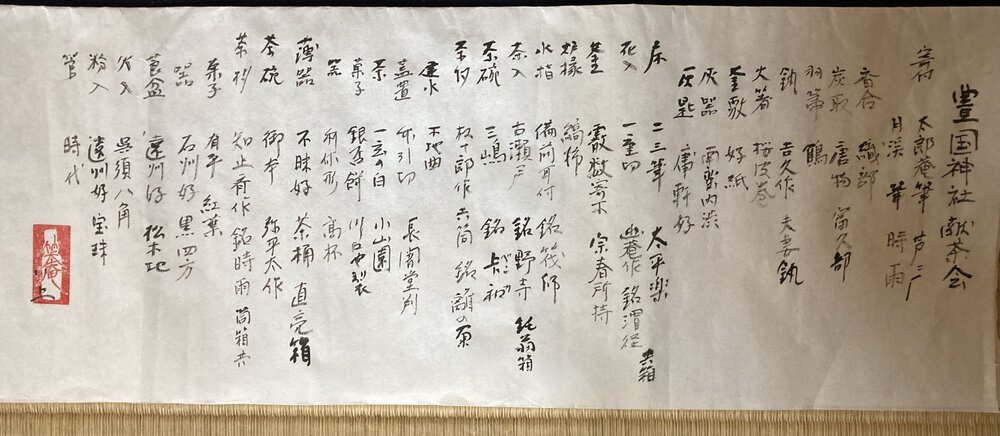 豊国神社献茶会
寄付 太郎庵筆 芦二戸
月渓筆 時雨
香合 織部
炭取 唐物 富久部
羽箒 鶴
釻 吉久作 夫妻釻
火箸 桜皮巻
釜敷 好紙
灰器 南蛮内渋
灰匙 庸軒好
床 二三筆 太平楽
花入 一重切 幽庵作 銘 共箱
釜 霰 宗春所持
炉縁 縞柿
水指 備前耳付 銘 筏師
茶入 古瀬戸 銘 野寺 箱
茶碗 三嶋 銘
茶杓 杉十郎作 共筒 銘
建水 木地曲
蓋置 竹引切 長闇堂判
茶 一玄の白 小山園
菓子 銀杏餅 川口や製
器 利休形 高杯
薄器 不昧好 茶桶 直亮箱
茶碗 御本 弥平太作
茶杓 知止斎作 銘時雨 筒箱共
菓子 有平 紅葉
器 石州好 黒四方
莨盆 遠州好 松木地
火入 呉須八角
粉入 遠州好 宝珠
管 時代
上